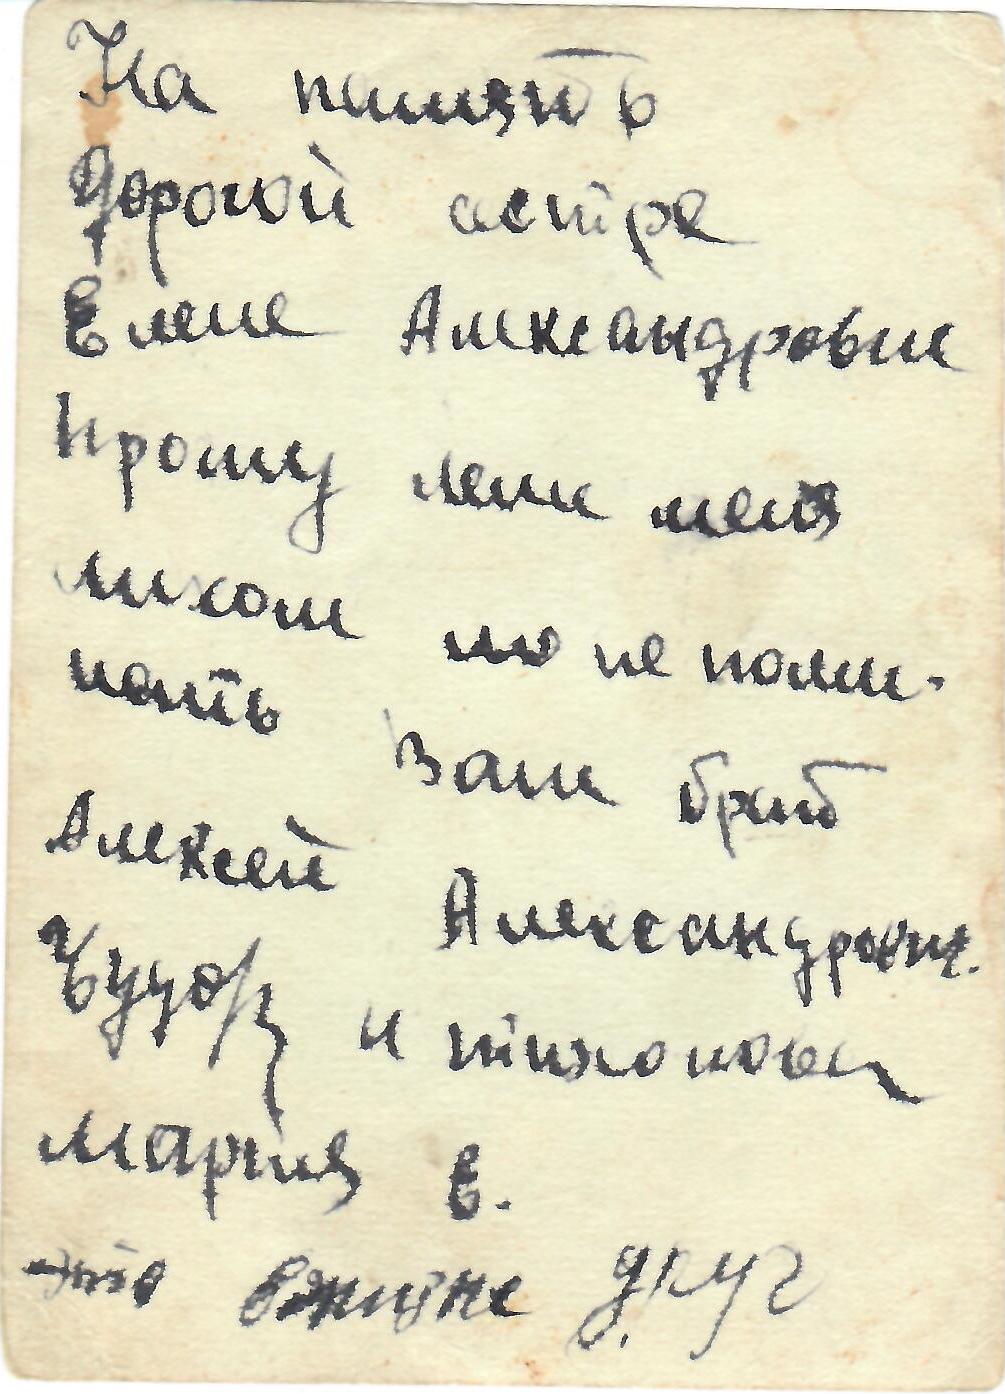 На память
Дорогой астре
Елене Александровне
Прошу лени меня
лихом то не поми-
нать Ваш брат
Алексей Александрович.
и тихонова
Мария Е.
это друг